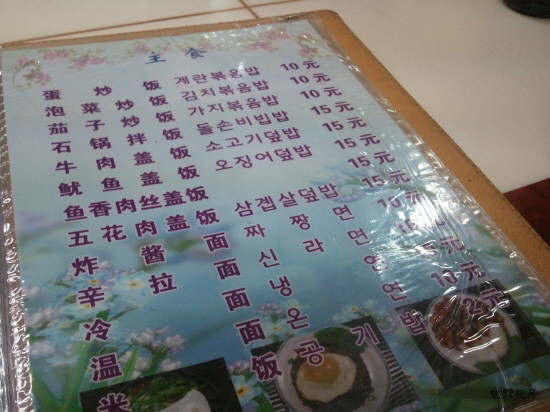 主食
蛋炒饭 계란볶음밥 10元
泡菜炒饭 김치볶음밥 10元
茄子炒饭 가지볶음밥 10元
石锅拌饭 돌손비빔밥 15元
牛肉盖饭 소고기덮밥 15元
鱿鱼盖饭 오징어덮밥 15元
鱼香肉丝盖饭 15元
五花肉盖饭 삼겹살덮밥 15元
炸酱面 짜짱면 10元
辛拉面 신라면
冷面 냉연
温面 온연
米饭 공기밥 2元